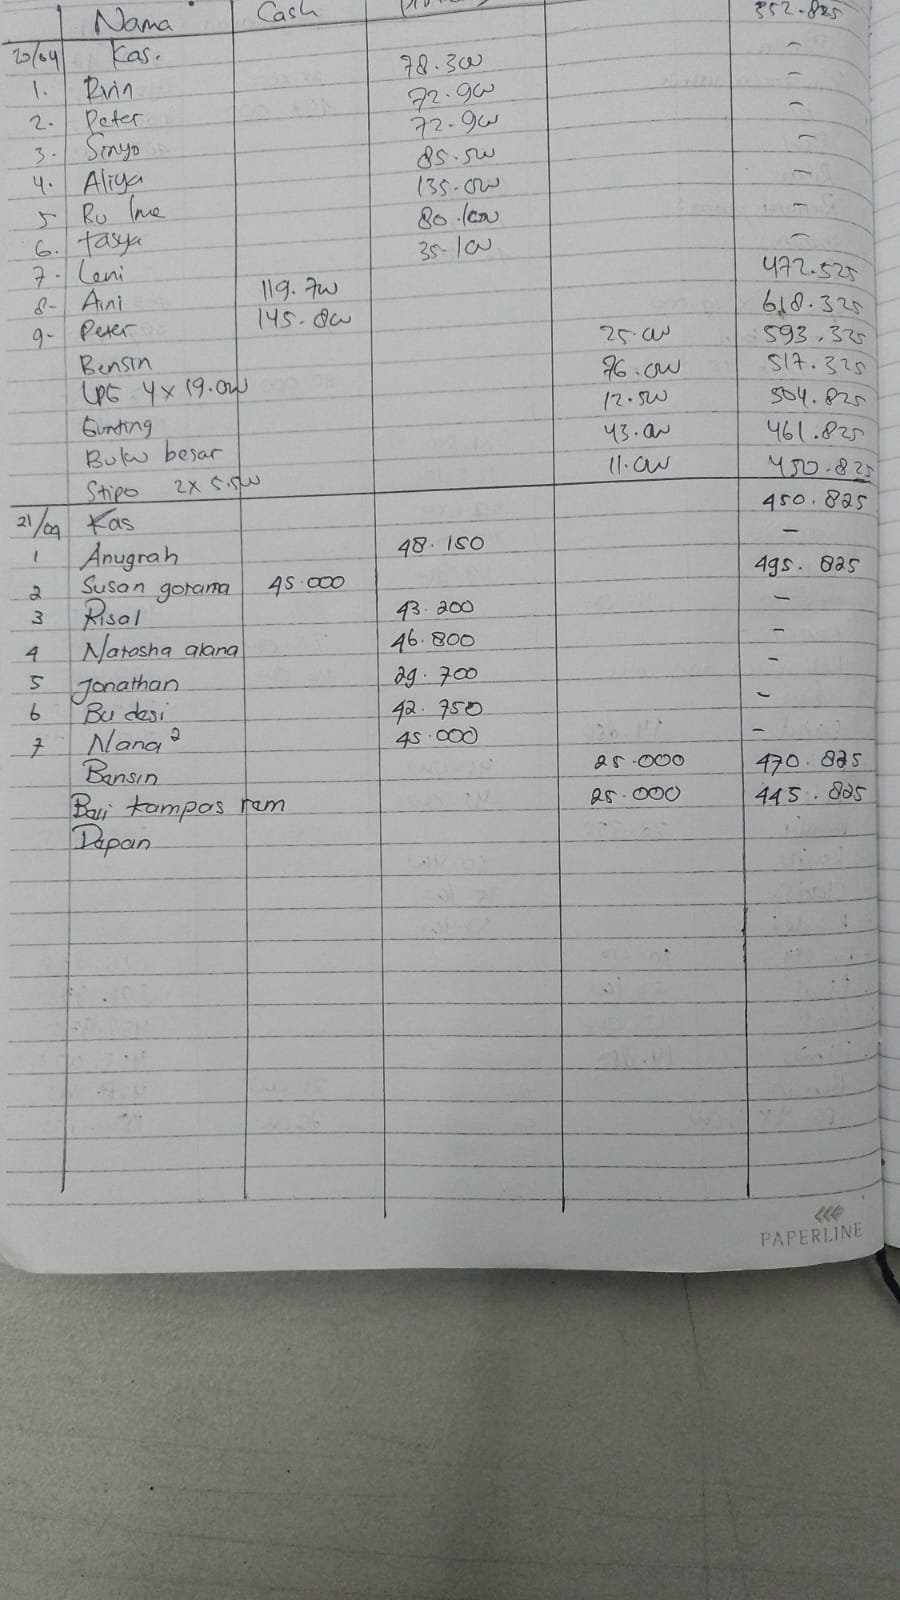 Nama Cash 352.825
20/04 Kas. -
1. Ririn 78.300 -
2. Peter 72.900 -
3. Sinyo 72.900 -
4. Aliya 85.500 -
5 Bu Ime 135.000 -
6. Tasya 80.100 -
7. Leni 35.100 -
8- Aini 119.700 472.525
9- Peter 145.800 618.325
Bensin 25.000 593.325
LPG 4 x 19.000 76.000 517.325
Gunting 12.500 504.825
Buku besar 43.000 461.825
Stipo 2 x 5.500 11.000 450.825
21/04 Kas 450.825
1 Anugrah 48.150 -
2 Susan gorama 45.000 495.825
3 Risal 43.200 -
4 Natasha alana 46.800 -
5 Jonathan 29.700 -
6 Bu desi 42.750 -
7 Nana² 45.000 -
Bensin 25.000 470.825
Beli kampas rem 25.000 445.825
Depan
PAPERLINE